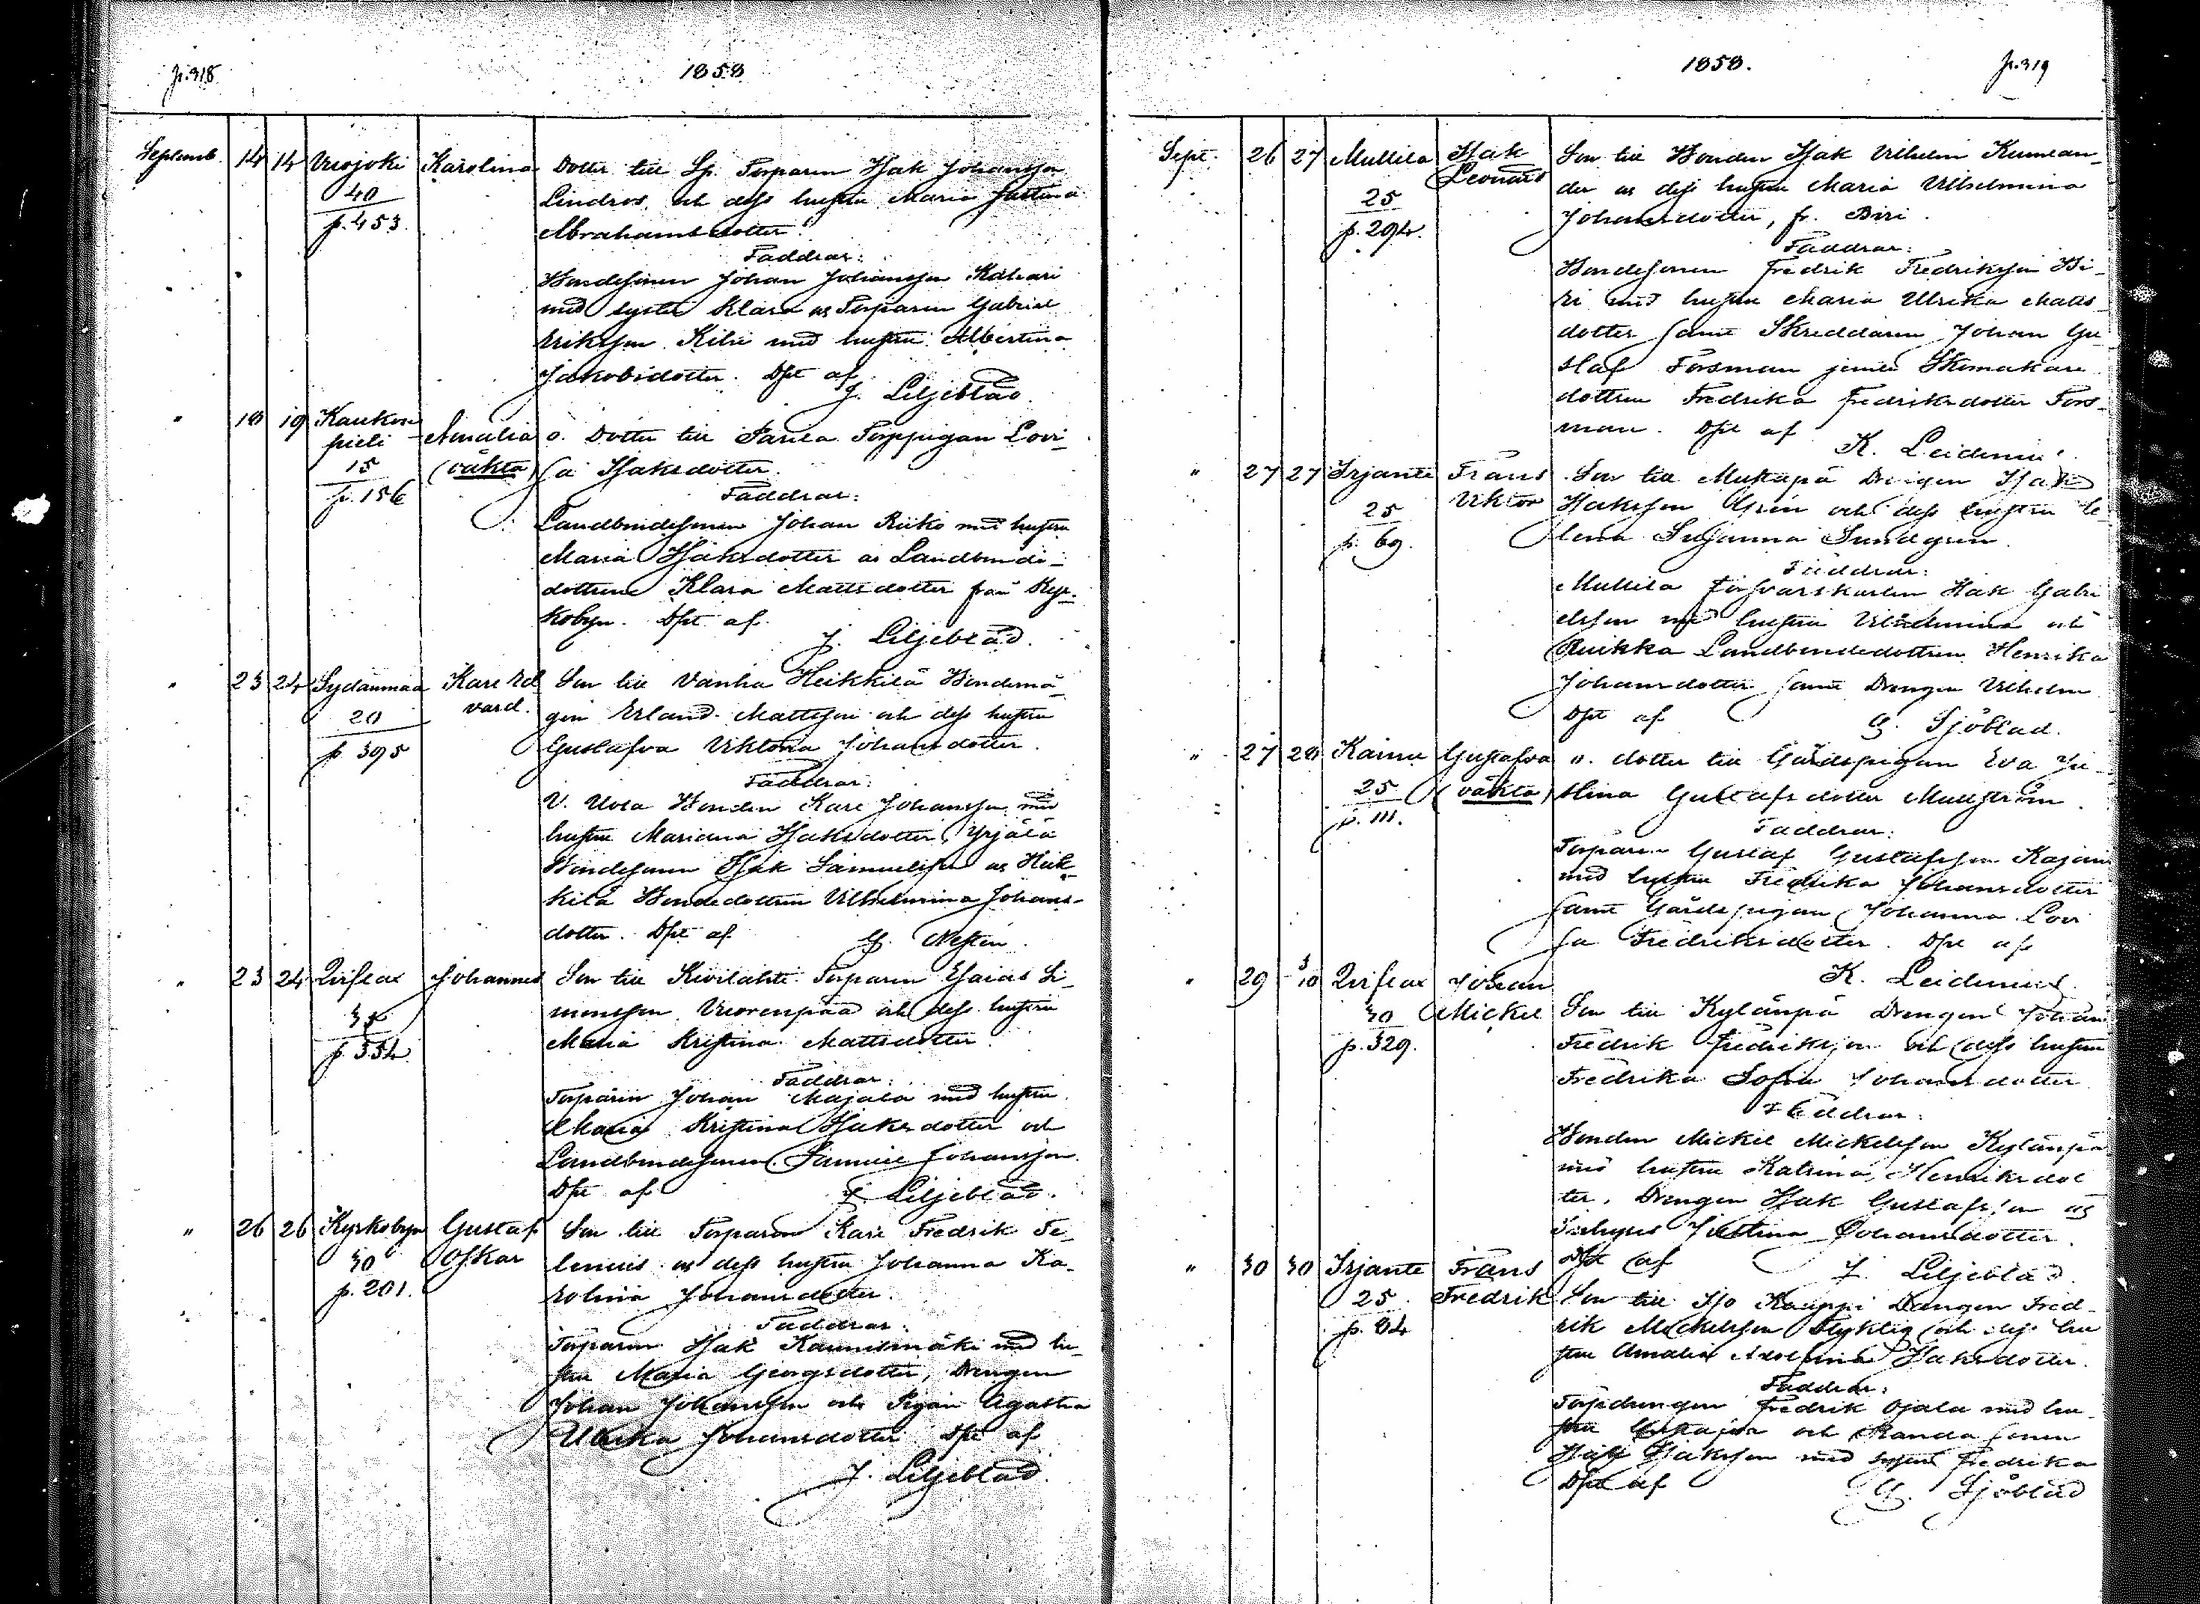 p. 318
1858
Septemb. 14 14 Vuojoki Karolina Dotter till Sp. Torparen Isak Johansson
40 Lindros och dess hustru Maria Justina
p. 453. Abrahamsdotter.
Faddrar:
Bondesonen Johan Johansson Kahari
med syster Klara och Torparen Gabriel
Eriksson Kilri med hustru Albertina
Jakobsdotter. Dpt af
J. Liljeblad.
" 18 19 Kauken
pieli Amalia o. Dotter till Panila Torppigan Lovi-
15 (oäkta) sa Isaksdotter.
p. 156
Faddrar:
Landbondesonen Johan Riiko med hustru
Maria Isaksdotter och Landbonde-
dottren Klara Mattsdotter från Kyr-
kobyn. Dpt af
J. Liljeblad.
" 23 24 Sydänmaa Karl Ed Son till Vanha Heikkilä Bondemå-
20 vard. gen Erland Mattsson och dess hustru
p 395 Gustafva Viktoria Johansdotter.
Faddrar:
V. Uola Bonden Karl Johansson med
hustru Mariana Isaksdotter, Yrjälä
Bondesonen Isak Samuelsson och Heik-
kilä Bondedottren Vilhelmina Johans-
dotter. Dpt af
G. Nestén.
" 23 24 Qvislax Johannes Son till Kivilahti Torparen Esaias Si-
35 monsson Vuorenpää och dess hustru
p. 334 Maria Kristina Mattsdotter.
Faddrar:
Torparen Johan Majala med hustru
Maria Kristina Isaksdotter och
Landbondesonen Samuel Johansson.
Dpt af J. Liljeblad.
" 26 26 Kyrkobyn Gustaf Son till Torparen Karl Fredrik Se-
30 Oskar lenius och dess hustru Johanna Ka-
p. 201. rolina Johansdotter.
Faddrar:
Torparen Isak Kaunismäki med hu-
stru Maria Georgsdotter, Drengen
Johan Johansson och Pigan Agatha
Ulrika Johansdotter Dpt af
J. Liljeblad.
1858.
p. 319
Sept. 26 27 Mullila Isak Son till Bonden Isak Vilhelm Kumlan-
Leonard der och dess hustru Maria Vilhelmina
25 Johansdotter, fr. Biri.
p. 294.
Faddrar:
Bondesonen Fredrik Fredriksson Bi-
ri med hustru Maria Ulrika Matts-
dotter samt Skreddaren Johan Gu-
staf Forsman jemte Skomakare
dottren Fredrika Fredriksdotter Fors-
man. Dpt af
K. Leidenius.
" 27 27 Irjante Frans Son till Mustapä Drengen Isak
25 Viktor Isaksson Grén och dess hustru He-
p. 69. lena Susanna Sundgren.
Faddrar:
Mullila Försvarskarlen Isak Gabri
elsson med hustru Vilhelmina och
Ruikka Landbondedottren Henrika
Johansdotter samt Drengen Vilhelm
Dpt af G. Sjöblad.
" 27 28 Kainu Gustafva o. dotter till Gårdspigan Eva Ju-
25 (oäkta) stina Gustafsdotter Mullström.
p. 111.
Faddrar:
Torparen Gustaf Gustafsson Kajani
med hustru Fredrika Johansdotter
samt Gårdspigan Johanna Lovi
sa Fredriksdotter. Dpt af
K. Leidenius.
" 29 3/10 Qvislax Johan
30 Mickel Son till Kylänpä Drengen Johan
p. 329. Fredrik Fredriksson och dess hustru
Fredrika Sofia Johansdotter
Faddrar:
Bonden Mickel Mickelsson Kylänpä
med hustru Katrina Henriksdot
ter. Drengen Isak Gustafsson och
Inhyses Justina Johansdotter.
Dpt af J. Liljeblad.
" 30 30 Irjante Frans
25. Fredrik Son till Iso Kauppi Drengen Fred-
p. 84 rik Mickelsson Styklig och dess hu
stru Amalia Adolfina Isaksdotter.
Faddrar:
Torpdrengen Fredrik Ojala med hu
stru Gustafva och Randa sonen
Isak Isaksson med syster Fredrika
Dpt af G. Sjöblad